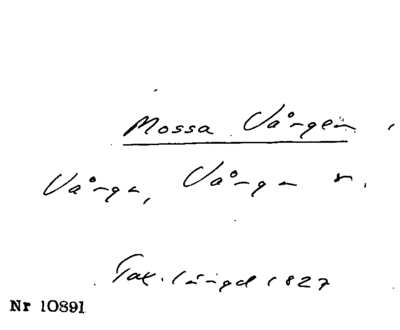 Mossa Vången,
Vånga, Vånga s.
Tax. längd 1827
Nr 10891